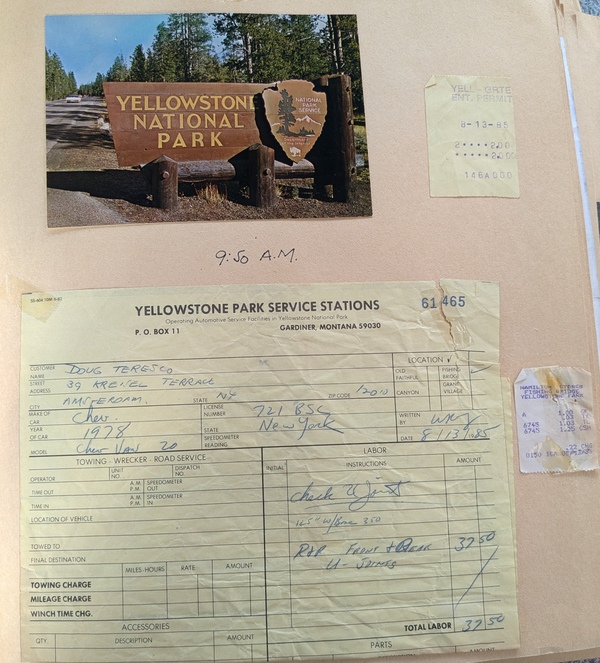 YELLOWSTONE
NATIONAL
PARK
NATIONAL
PARK
SERVICE
ENT. PERMIT
8-13-85
2••••2.00
•••••2.00
146A030
9:50 A.M.
YELLOWSTONE PARK SERVICE STATIONS
61465
Operating Automotive Service Facilities in Yellowstone National Park
P. O. BOX 11 GARDINER, MONTANA 59030
CUSTOMER NAME DOUG TERESCO
STREET ADDRESS 39 KREISEL TERRACE
CITY AMSTERDAM, STATE NY ZIP CODE 12010
LOCATION
OLD FAITHFUL
FISHING BRIDGE
CANYON
GRANT VILLAGE
MAKE OF CAR Chev.
LICENSE NUMBER 721 BSG
WRITTEN BY
YEAR OF CAR 1978
STATE New York
DATE 8/13/85
MODEL Chev Van 20
SPEEDOMETER READING
TOWING - WRECKER - ROAD SERVICE
LABOR
OPERATOR
UNIT NO.
DISPATCH NO.
INITIAL
INSTRUCTIONS
AMOUNT
TIME OUT A.M. P.M. SPEEDOMETER OUT
TIME IN A.M. P.M. SPEEDOMETER IN
check U Joint
LOCATION OF VEHICLE
350
TOWED TO
R&R Front & Rear 37 50
U-Joints
FINAL DESTINATION
MILES-HOURS RATE AMOUNT
TOWING CHARGE
MILEAGE CHARGE
WINCH TIME CHG.
TOTAL LABOR 37 50
ACCESSORIES
PARTS
QTY. DESCRIPTION AMOUNT
FISHING BRIDGE
YELLOWSTONE PARK
A
6745 1.03
6745